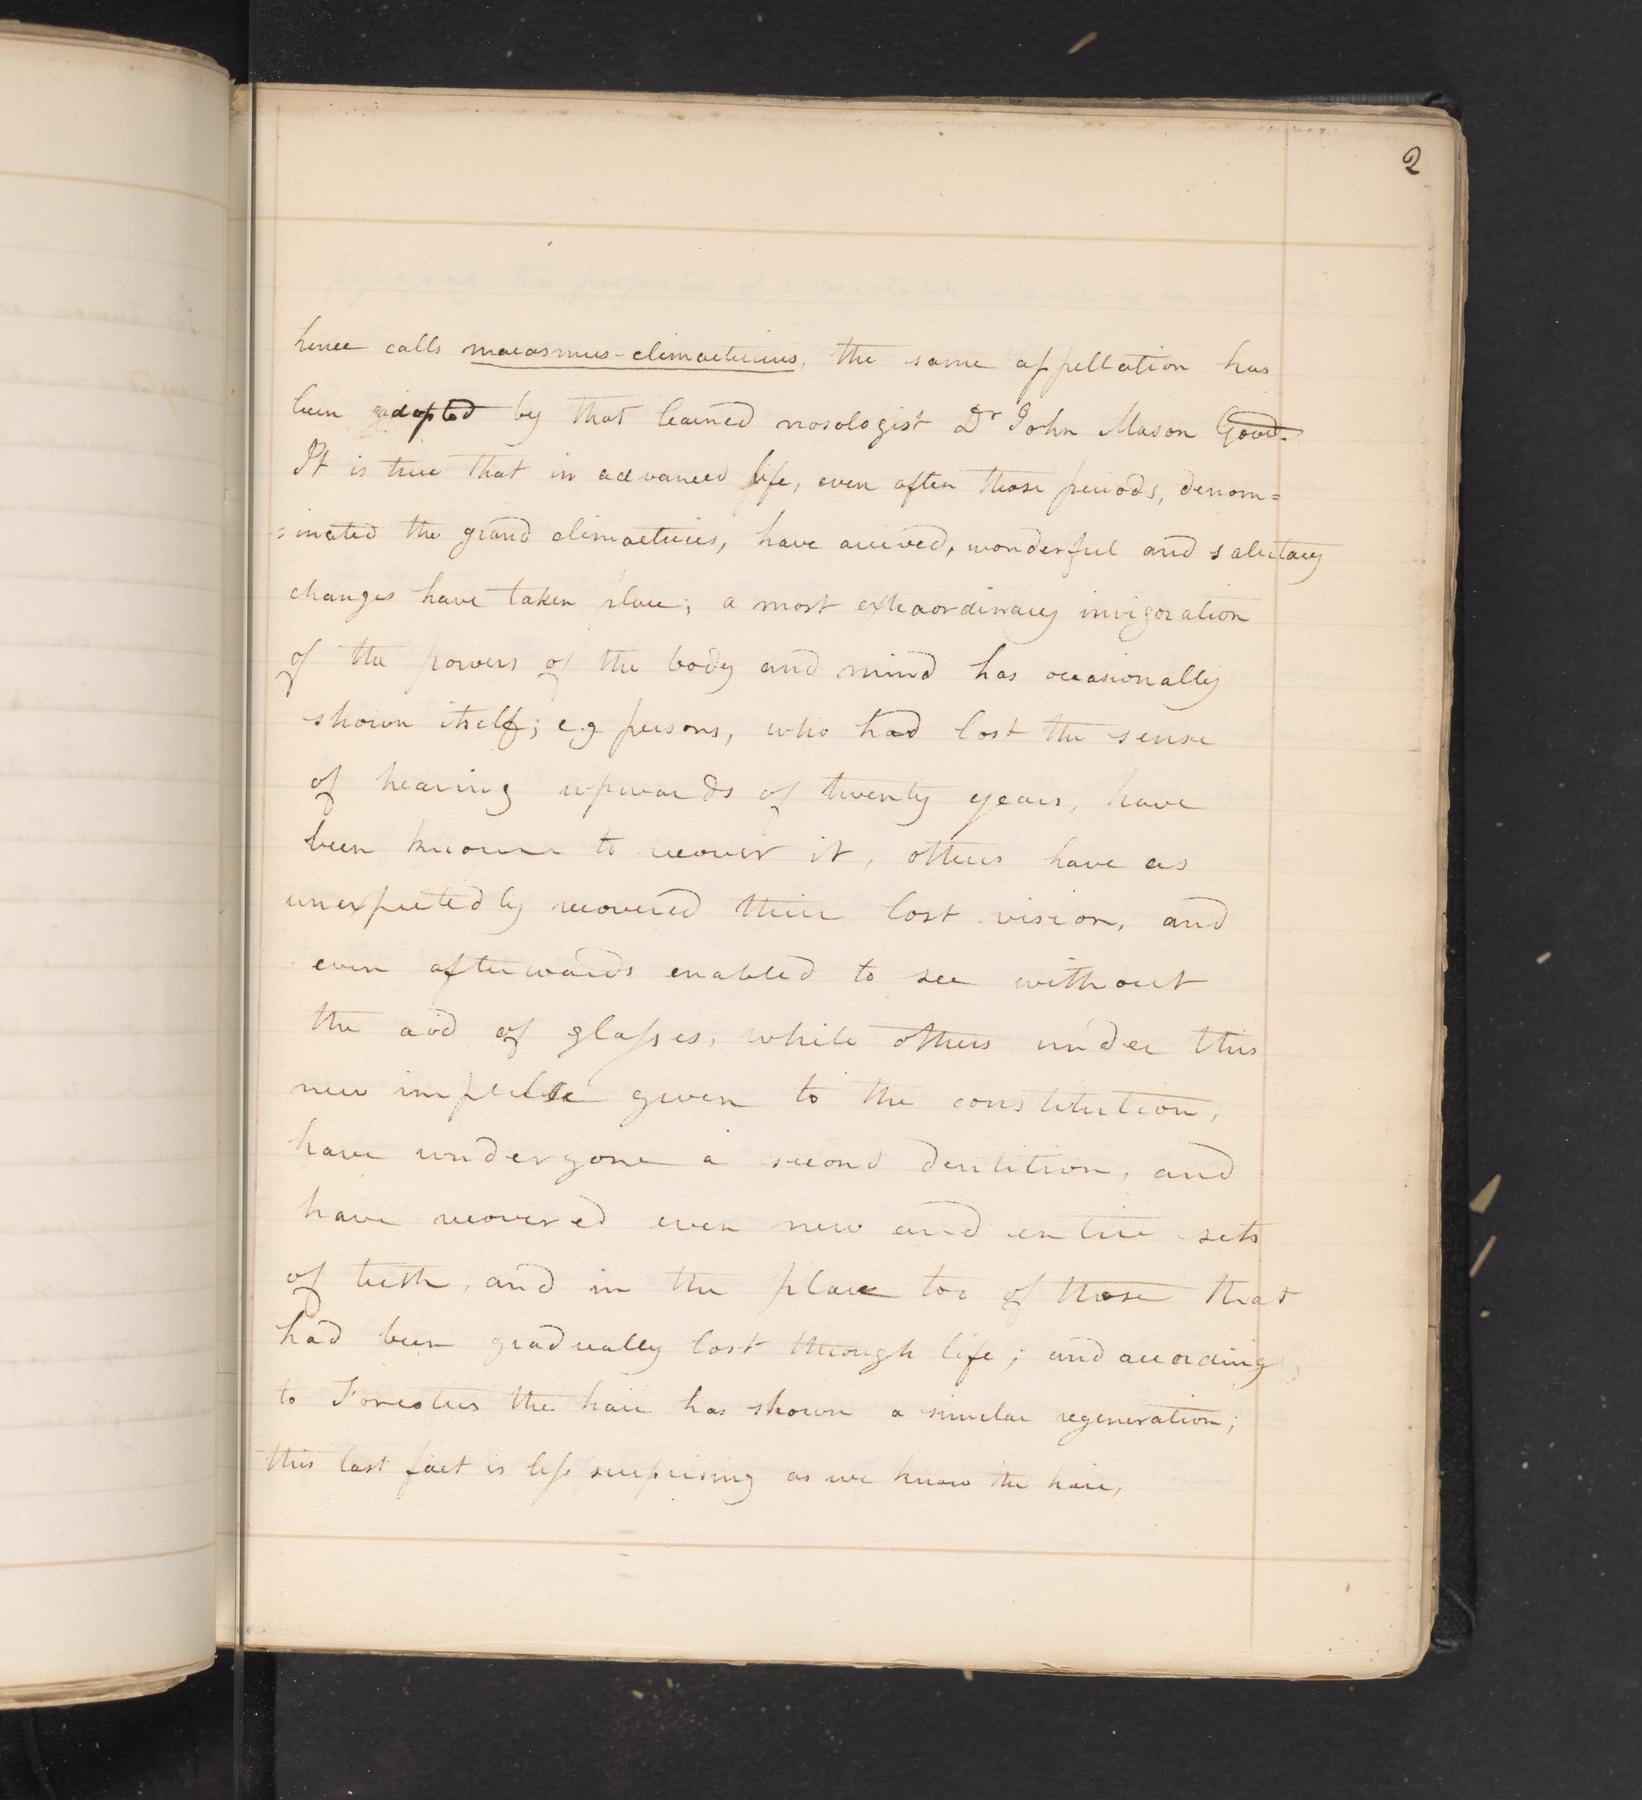 2
hence calls marasmus-climactericus, the same appellation has
been adopted by that learned nosologist Dr John Mason Good.
It is true that in advanced life, even after those periods, denom=
=inated the grand climacterics, have arrived, wonderful and salutary
changes have taken place; a most extraordinary invigoration
of the powers of the body and mind has occasionally
shown itself; e.g persons, who had lost the sense
of hearing upwards of twenty years, have
been known to recover it, others have as
unexpectedly recovered their lost vision, and
even afterwards enabled to see without
the aid of glasses, while others under this
new impulse given to the constitution,
have undergone a second dentition, and
have recovered even new and entire sets
of teeth, and in the place too of those that
had been gradually lost through life; and acording
to Forestus the hair has shown a similar regeneration;
this last fact is less surprising as we know the hair,